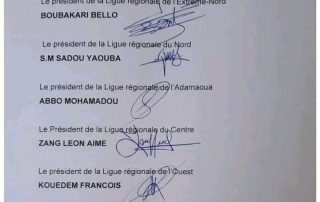 Le président de la Ligue régionale de l'Extrême-Nord
BOUBAKARI BELLO
Le président de la Ligue régionale du Nord
S.M SADOU YAOUBA
Le président de la Ligue régionale de l'Adamaoua
ABBO MOHAMADOU
Le Président de la Ligue régionale du Centre
ZANG LEON AIME
Le président de la Ligue régionale de l'Ouest
KOUEDEM FRANCOIS